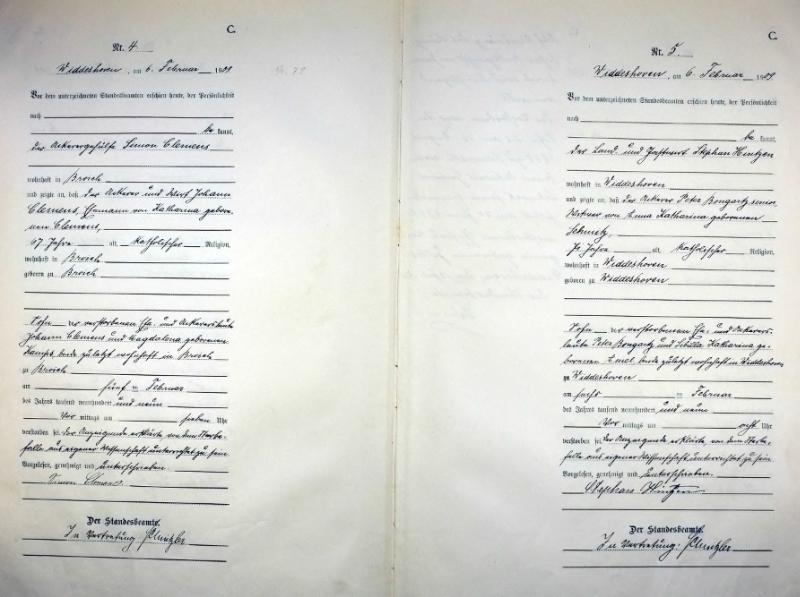 C.
Nr. 4
Widdeshoven, am 6. Februar 1909
Vor dem unterzeichneten Standesbeamten erschien heute, der Persönlichkeit
nach
be kannt,
der Ackerergehülfe Simon Clemens
wohnhaft in Broich
und zeigte an, daß der Ackerer und Wirt Johann
Clemens, Ehemann von Katharina gebore-
nen Clemens,
Jahre alt, katholischer Religion,
wohnhaft in Broich
geboren zu Broich
Sohn der verstorbenen Ehe- und Ackersleute
Johann Clemens und Magdalena geborenen
Kamps, beide zuletzt wohnhaft in Broich
zu Broich
am fünf ten Februar
des Jahres tausend neunhundert und neun
Vor mittags um sieben Uhr
verstorben sei. Der Anzeigende erklärte, von dem Sterbe-
falle aus eigener Wissenschaft unterrichtet zu sein.
Vorgelesen, genehmigt und unterschrieben.
Simon Clemens
Der Standesbeamte.
In Vertretung:
C.
Nr. 5.
Widdeshoven, am 6. Februar 1909
Vor dem unterzeichneten Standesbeamten erschien heute, der Persönlichkeit
nach
be kannt,
der Land- und Gastwirt Stephan Hintzen
wohnhaft in Widdeshoven
und zeigte an, daß der Ackerer Peter Bongartz senior,
Witwer von Anna Katharina geborenen
Schmitz,
Jahre alt, katholischer Religion,
wohnhaft in Widdeshoven
geboren zu Widdeshoven
Sohn der verstorbenen Ehe- und Ackers-
leute Peter Bongartz und Sibilla Katharina ge-
borenen beide zuletzt wohnhaft in Widdeshoven
zu Widdeshoven
am sechs ten Februar
des Jahres tausend neunhundert und neun
Vor mittags um acht Uhr
verstorben sei. Der Anzeigende erklärte, von dem Sterbe-
falle aus eigener Wissenschaft unterrichtet zu sein.
Vorgelesen, genehmigt und unterschrieben.
Stephan Hintzen
Der Standesbeamte.
In Vertretung: